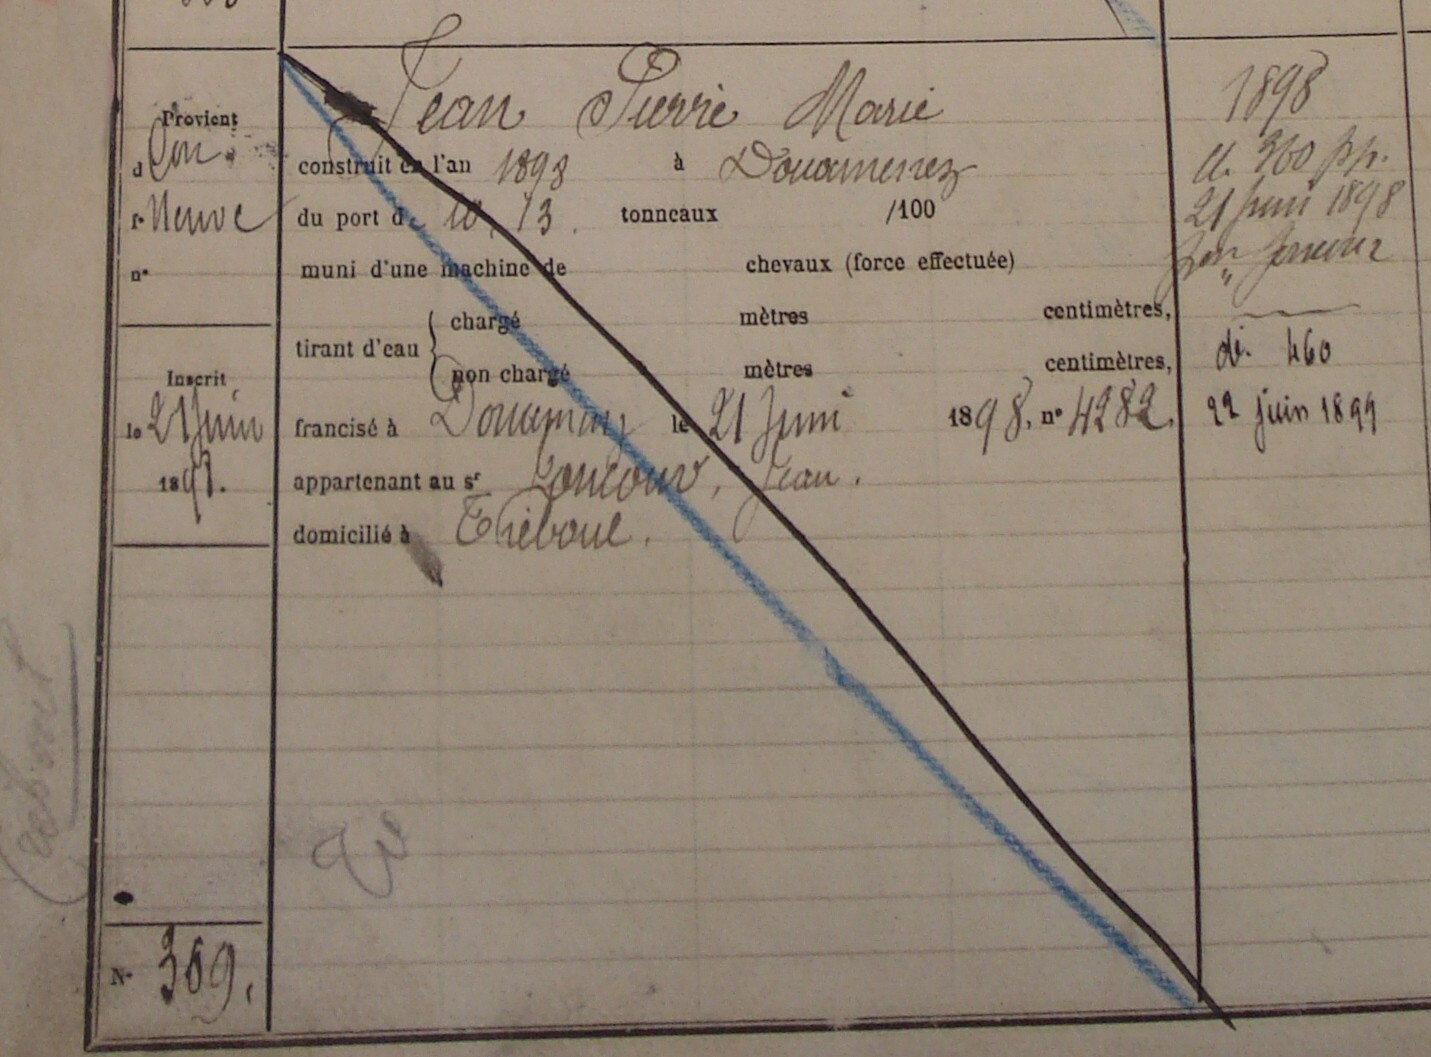 Jean Pierre Marie
Provient
d Con.
construit en l'an 1898 à Douarnenez
fn Neuve
du port de 10, 13. tonneaux /100
n°
muni d'une machine de chevaux (force effectuée)
tirant d'eau
chargé mètres centimètres,
non chargé mètres centimètres,
Inscrit
le 21 Juin
1898.
francisé à Douarnenez le 21 Juin 1898, n° 4282.
appartenant au sr Joncour, Jean.
domicilié à Tréboul.
N° 369.
1898
d. 360 pp.
21 Juin 1898
dé. 460
22 juin 1899